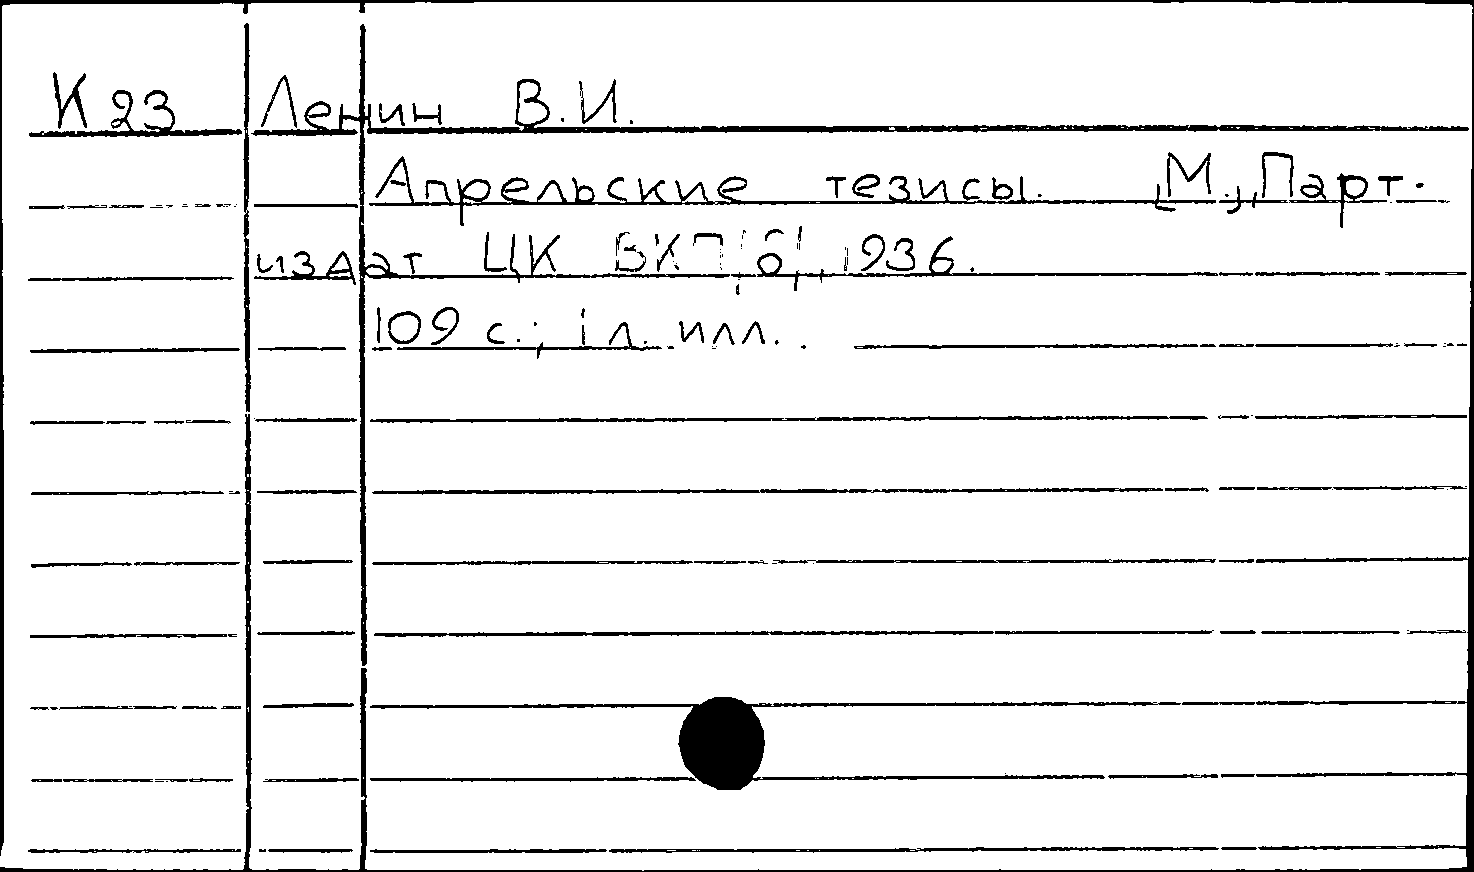 К 23 Ленин В.И.
Апрельские тезисы. [М.], Парт.
издат ЦК ВКП/б/, 1936.
109 с.; 1 л. илл.